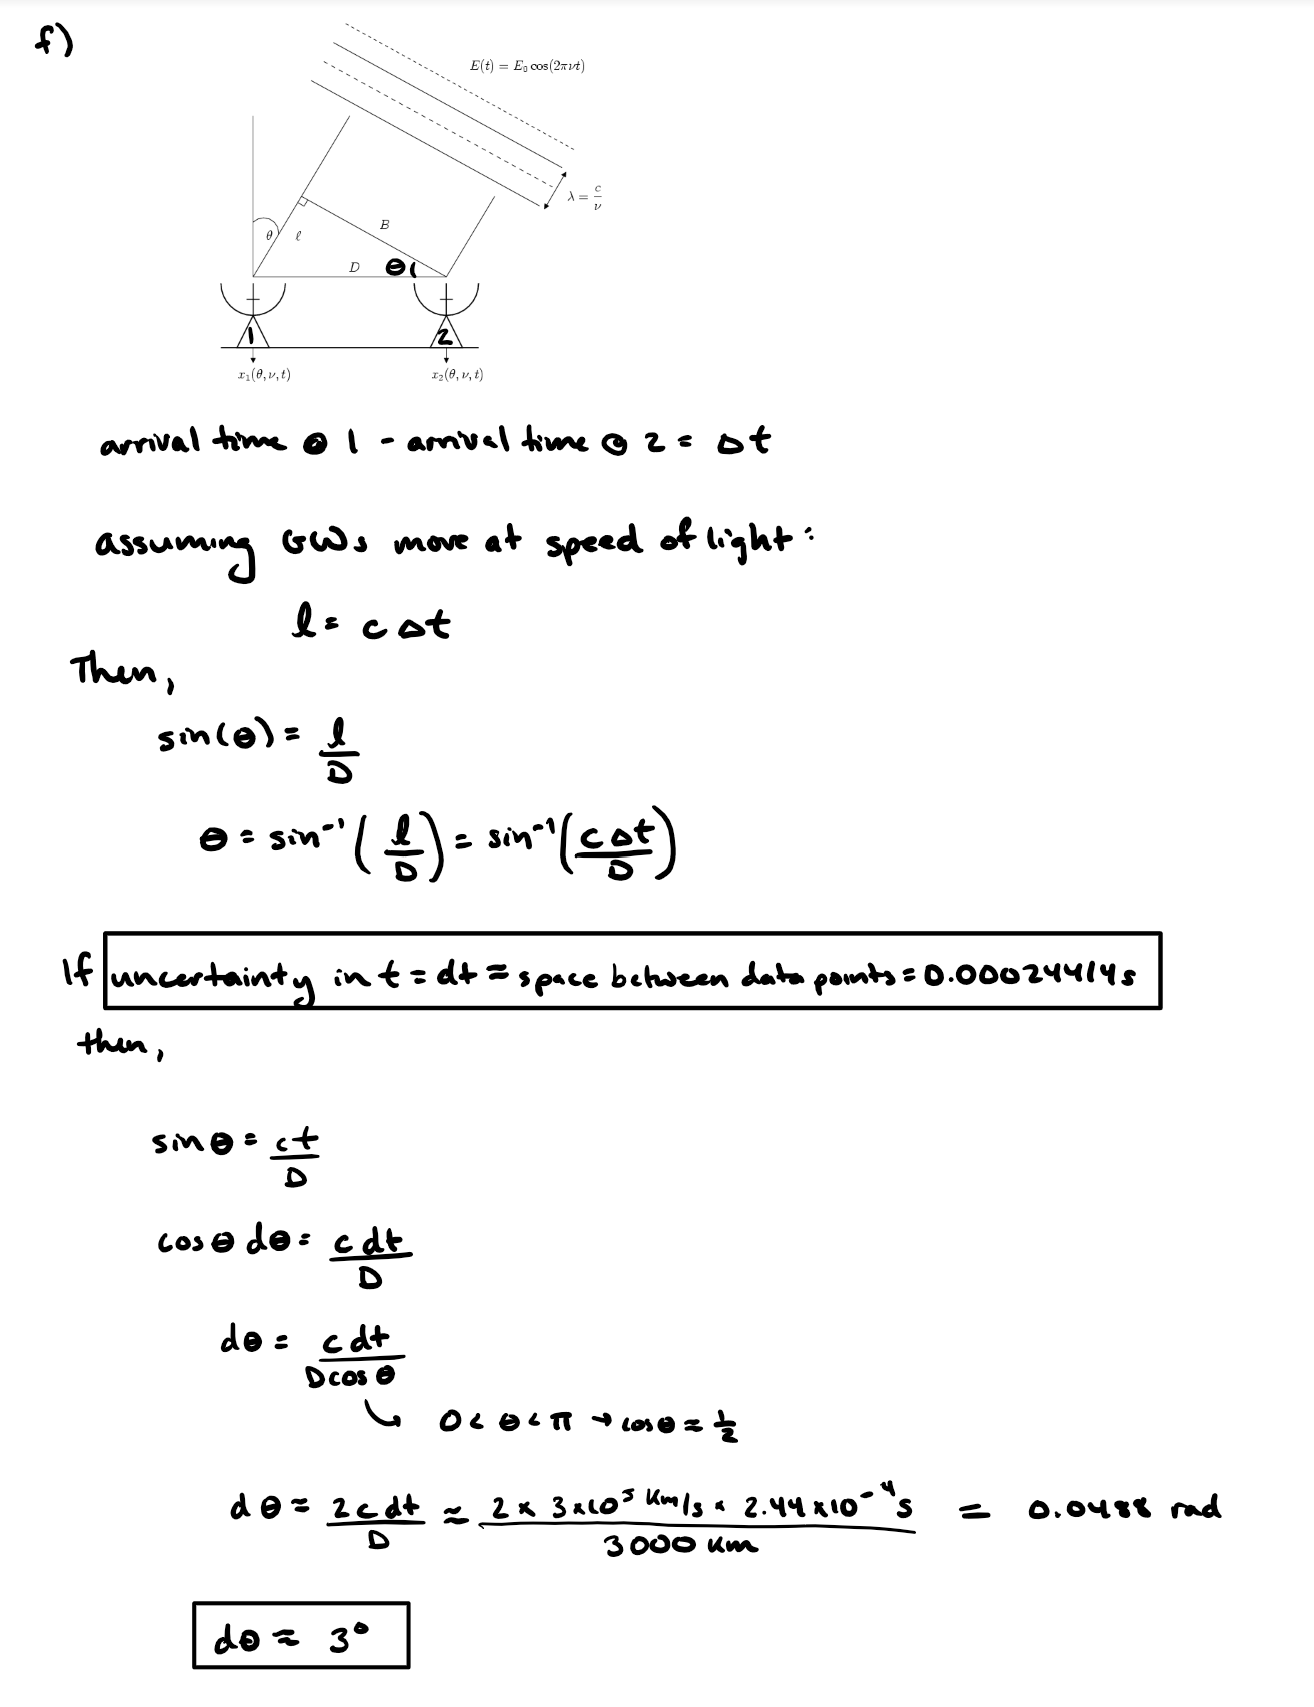 f)
E(t) = E₀ cos(2πνt)
λ = c/ν
θ ℓ B
D θ
1 2
x₁(θ, ν, t) x₂(θ, ν, t)
arrival time @ 1 - arrival time @ 2 = Δt
assuming GWs move at speed of light:
l = cΔt
Then,
sin(θ) = l/D
θ = sin⁻¹(l/D) = sin⁻¹(cΔt/D)
If uncertainty in t = dt = space between data points = 0.00024414s
then,
sinθ = ct/D
cosθ dθ = c dt/D
dθ = c dt/D cos θ
↘ 0 < θ < π → cosθ ≈ 1/2
dθ ≈ 2c dt/D ≈ 2 × 3×10⁵ km/s × 2.44×10⁻⁴s/3000 km = 0.0488 rad
dθ ≈ 3°